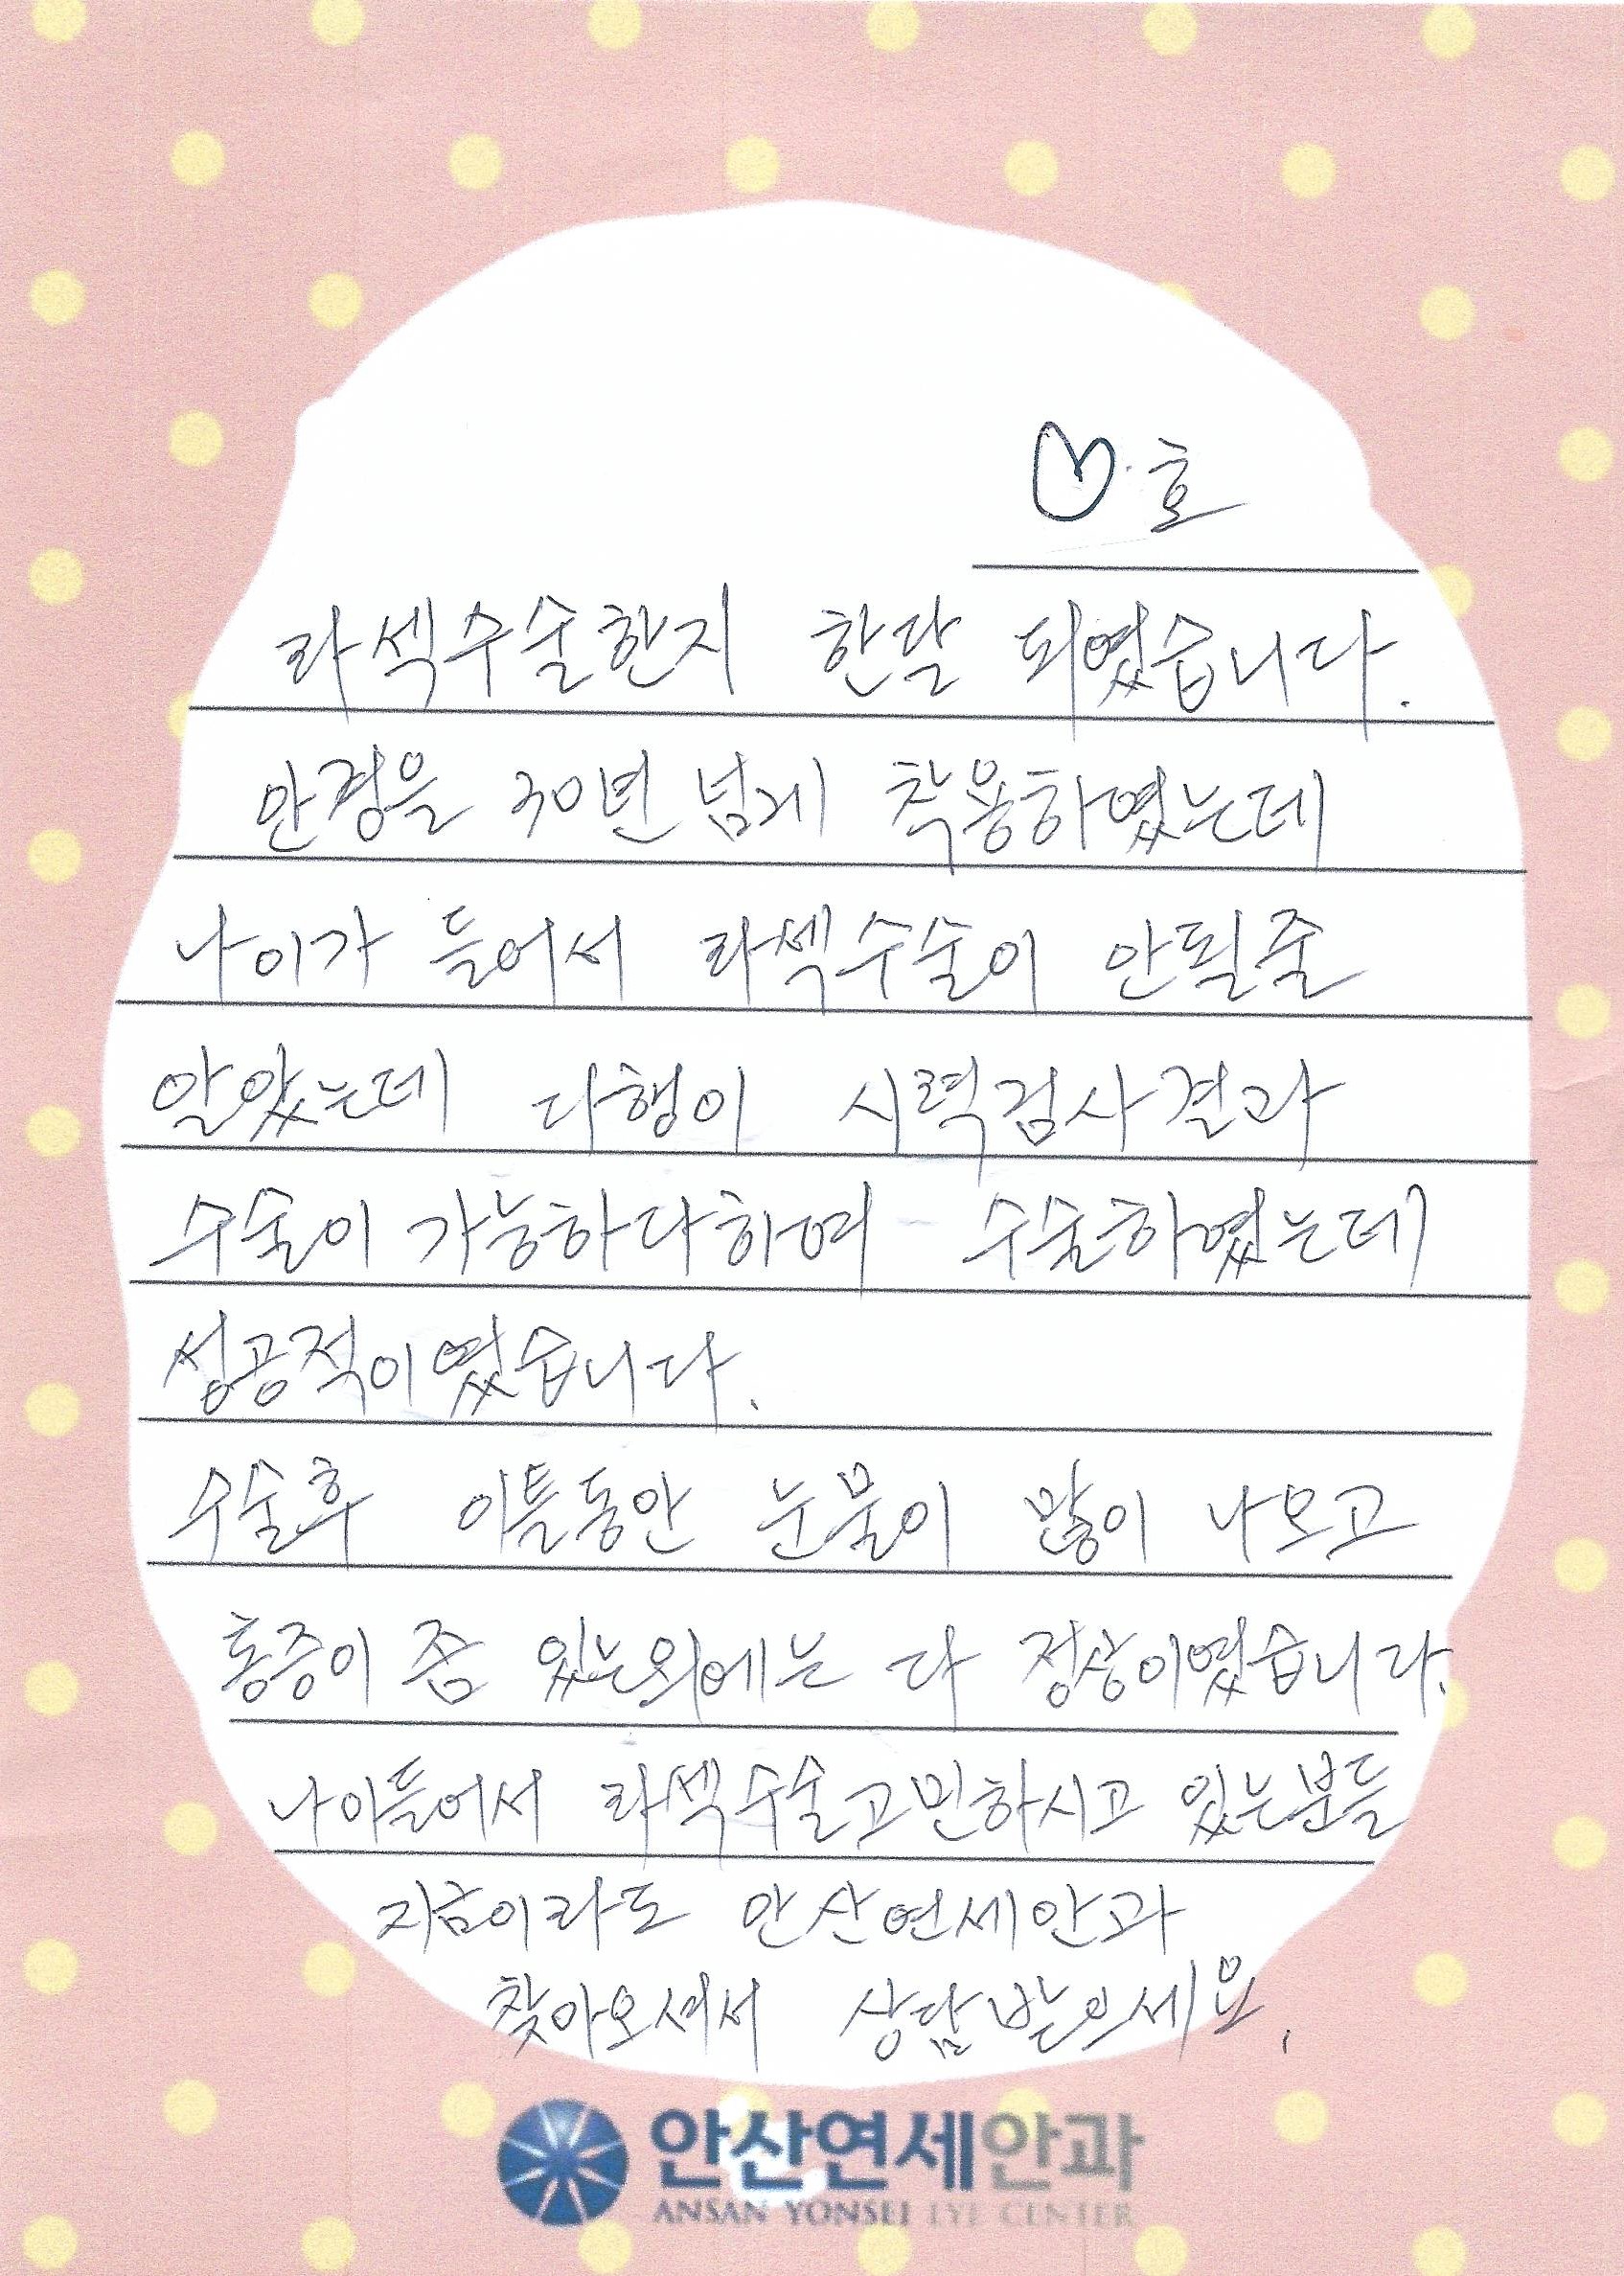 호
라섹수술한지 한달 되였습니다.
안경을 30년 넘게 착용하였는데
나이가 들어서 라섹수술이 안될줄
알았는데 다행이 시력검사결과
수술이 가능하다하여 수술하였는데
성공적이였습니다.
수술후 이틀동안 눈물이 많이 나오고
통증이 좀 있는외에는 다 정상이였습니다.
나이들어서 라섹수술고민하시고 있는분들
지금이라도 안산연세안과
찾아오셔서 상담받으세요.
안산연세안과
ANSAN YONSEI EYE CENTER